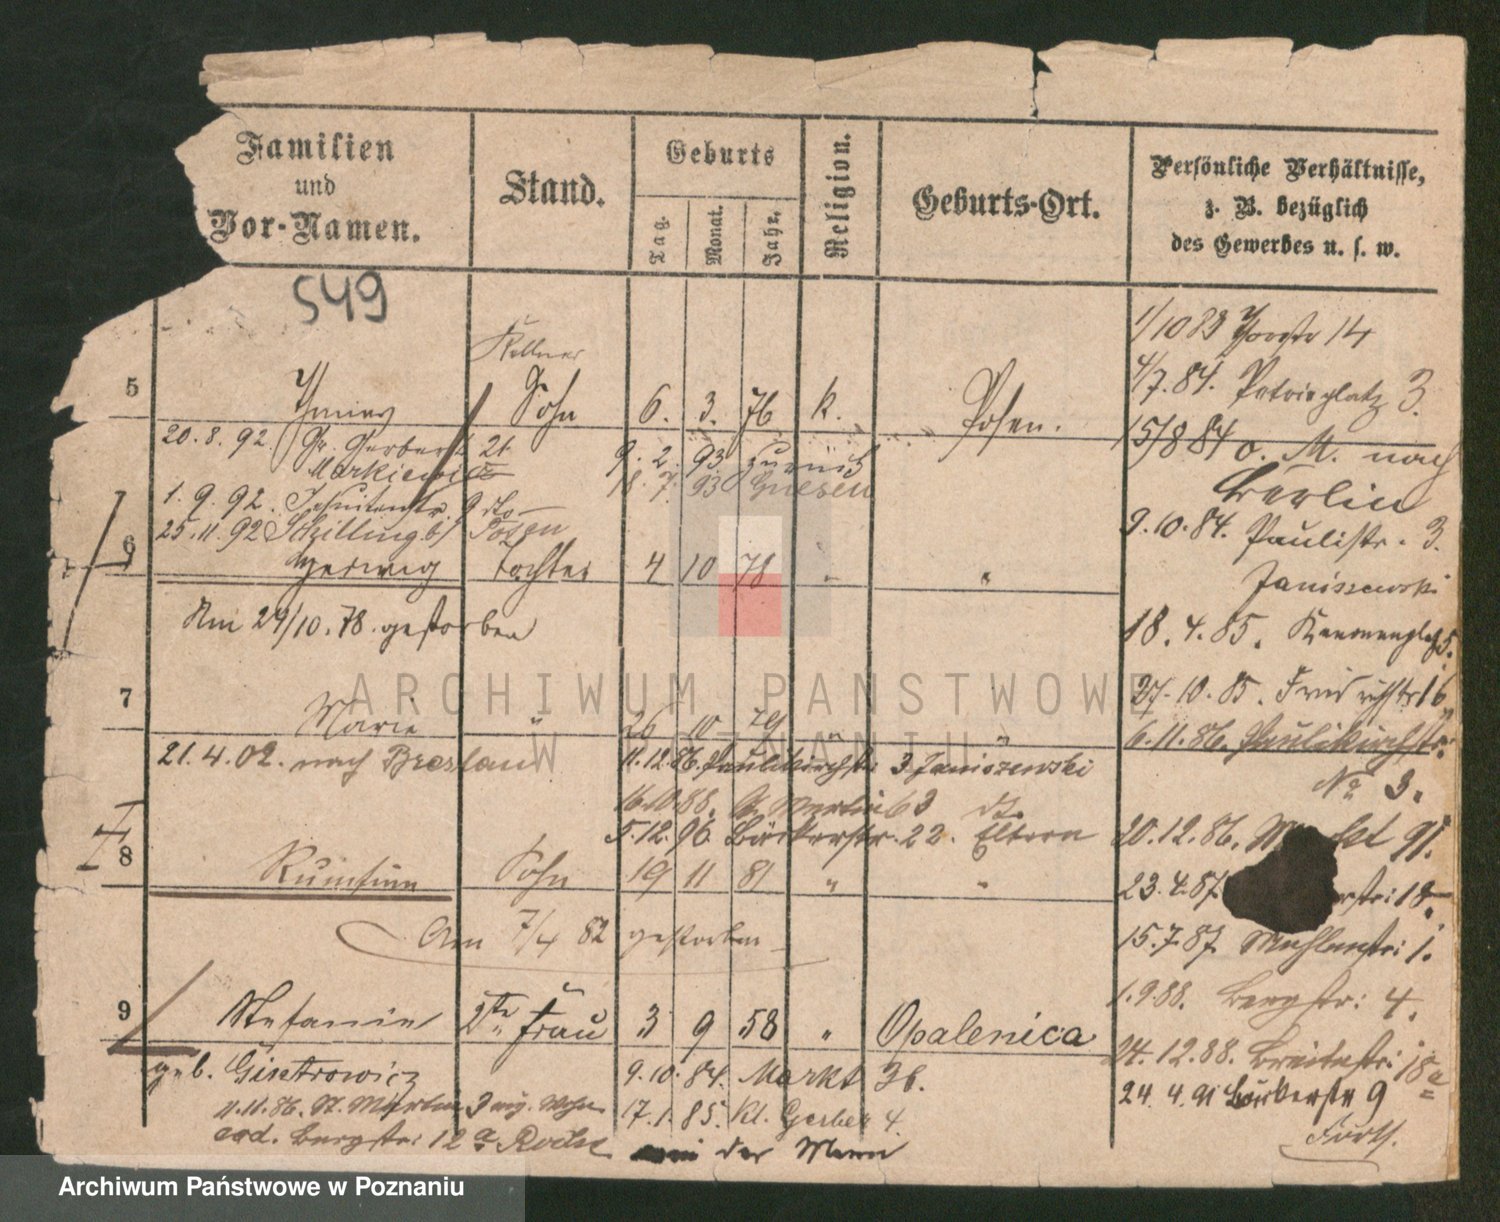 Familien
und
Vor-Namen.
Stand.
Geburts
Tag.
Monat.
Jahr.
Religion.
Geburts-Ort.
Persönliche Verhältnisse,
z. B. bezüglich
des Gewerbes u. s. w.
549
Kellner
5
Sohn
6. 3. 76
k.
Posen.
20.8.92. Gr. Gerberst 21
Markiewicz
9. 2. 93
18. 7. 93 Gnesen
1.9.92. Jesuitenstr. 9 dto
25.11.92 Schilling b/ Posen
6
Hedwig
Tochter
4 10 78
"
Am 29/10.78. gestorben
7
Marie
"
26 10 79
"
21.4.02. nach Breslau
11.12.86. Paulikirchstr. 3 Janiszewski
16.10.88. St. Martin 63 dto
5.12.96. Bäckerstr. 22. Eltern
8
Sohn
19 11 81
"
"
Am 7/4 82 gestorben
9
Stefanie
2te Frau
3 9 58
"
Opalenica
geb. Gistrowicz
9.10.84. Markt 36.
11.11.86. St. Martin 3
17.1.85. Kl. Gerber 4.
Bergstr. 12a
der
1/10 83 14
4/7.84. Petriplatz 3.
15/8 84 o. M. nach
Berlin
9.10.84. Paulistr. 3.
Janiszewski
18.4.85. Kanonenplatz 5.
27.10.85. Friedrichstr 16
6.11.86. Paulikirchstr.
No 3.
20.12.86. 91.
23.4.87. 18.
15.7.87. Mühlenstr. 1.
1.9.88. Bergstr. 4.
24.12.88. Breitestr. 18a
24.4.91 Bäckerstr 9
Forts.
ARCHIWUM PAŃSTWOWE
W POZNANIU
Archiwum Państwowe w Poznaniu